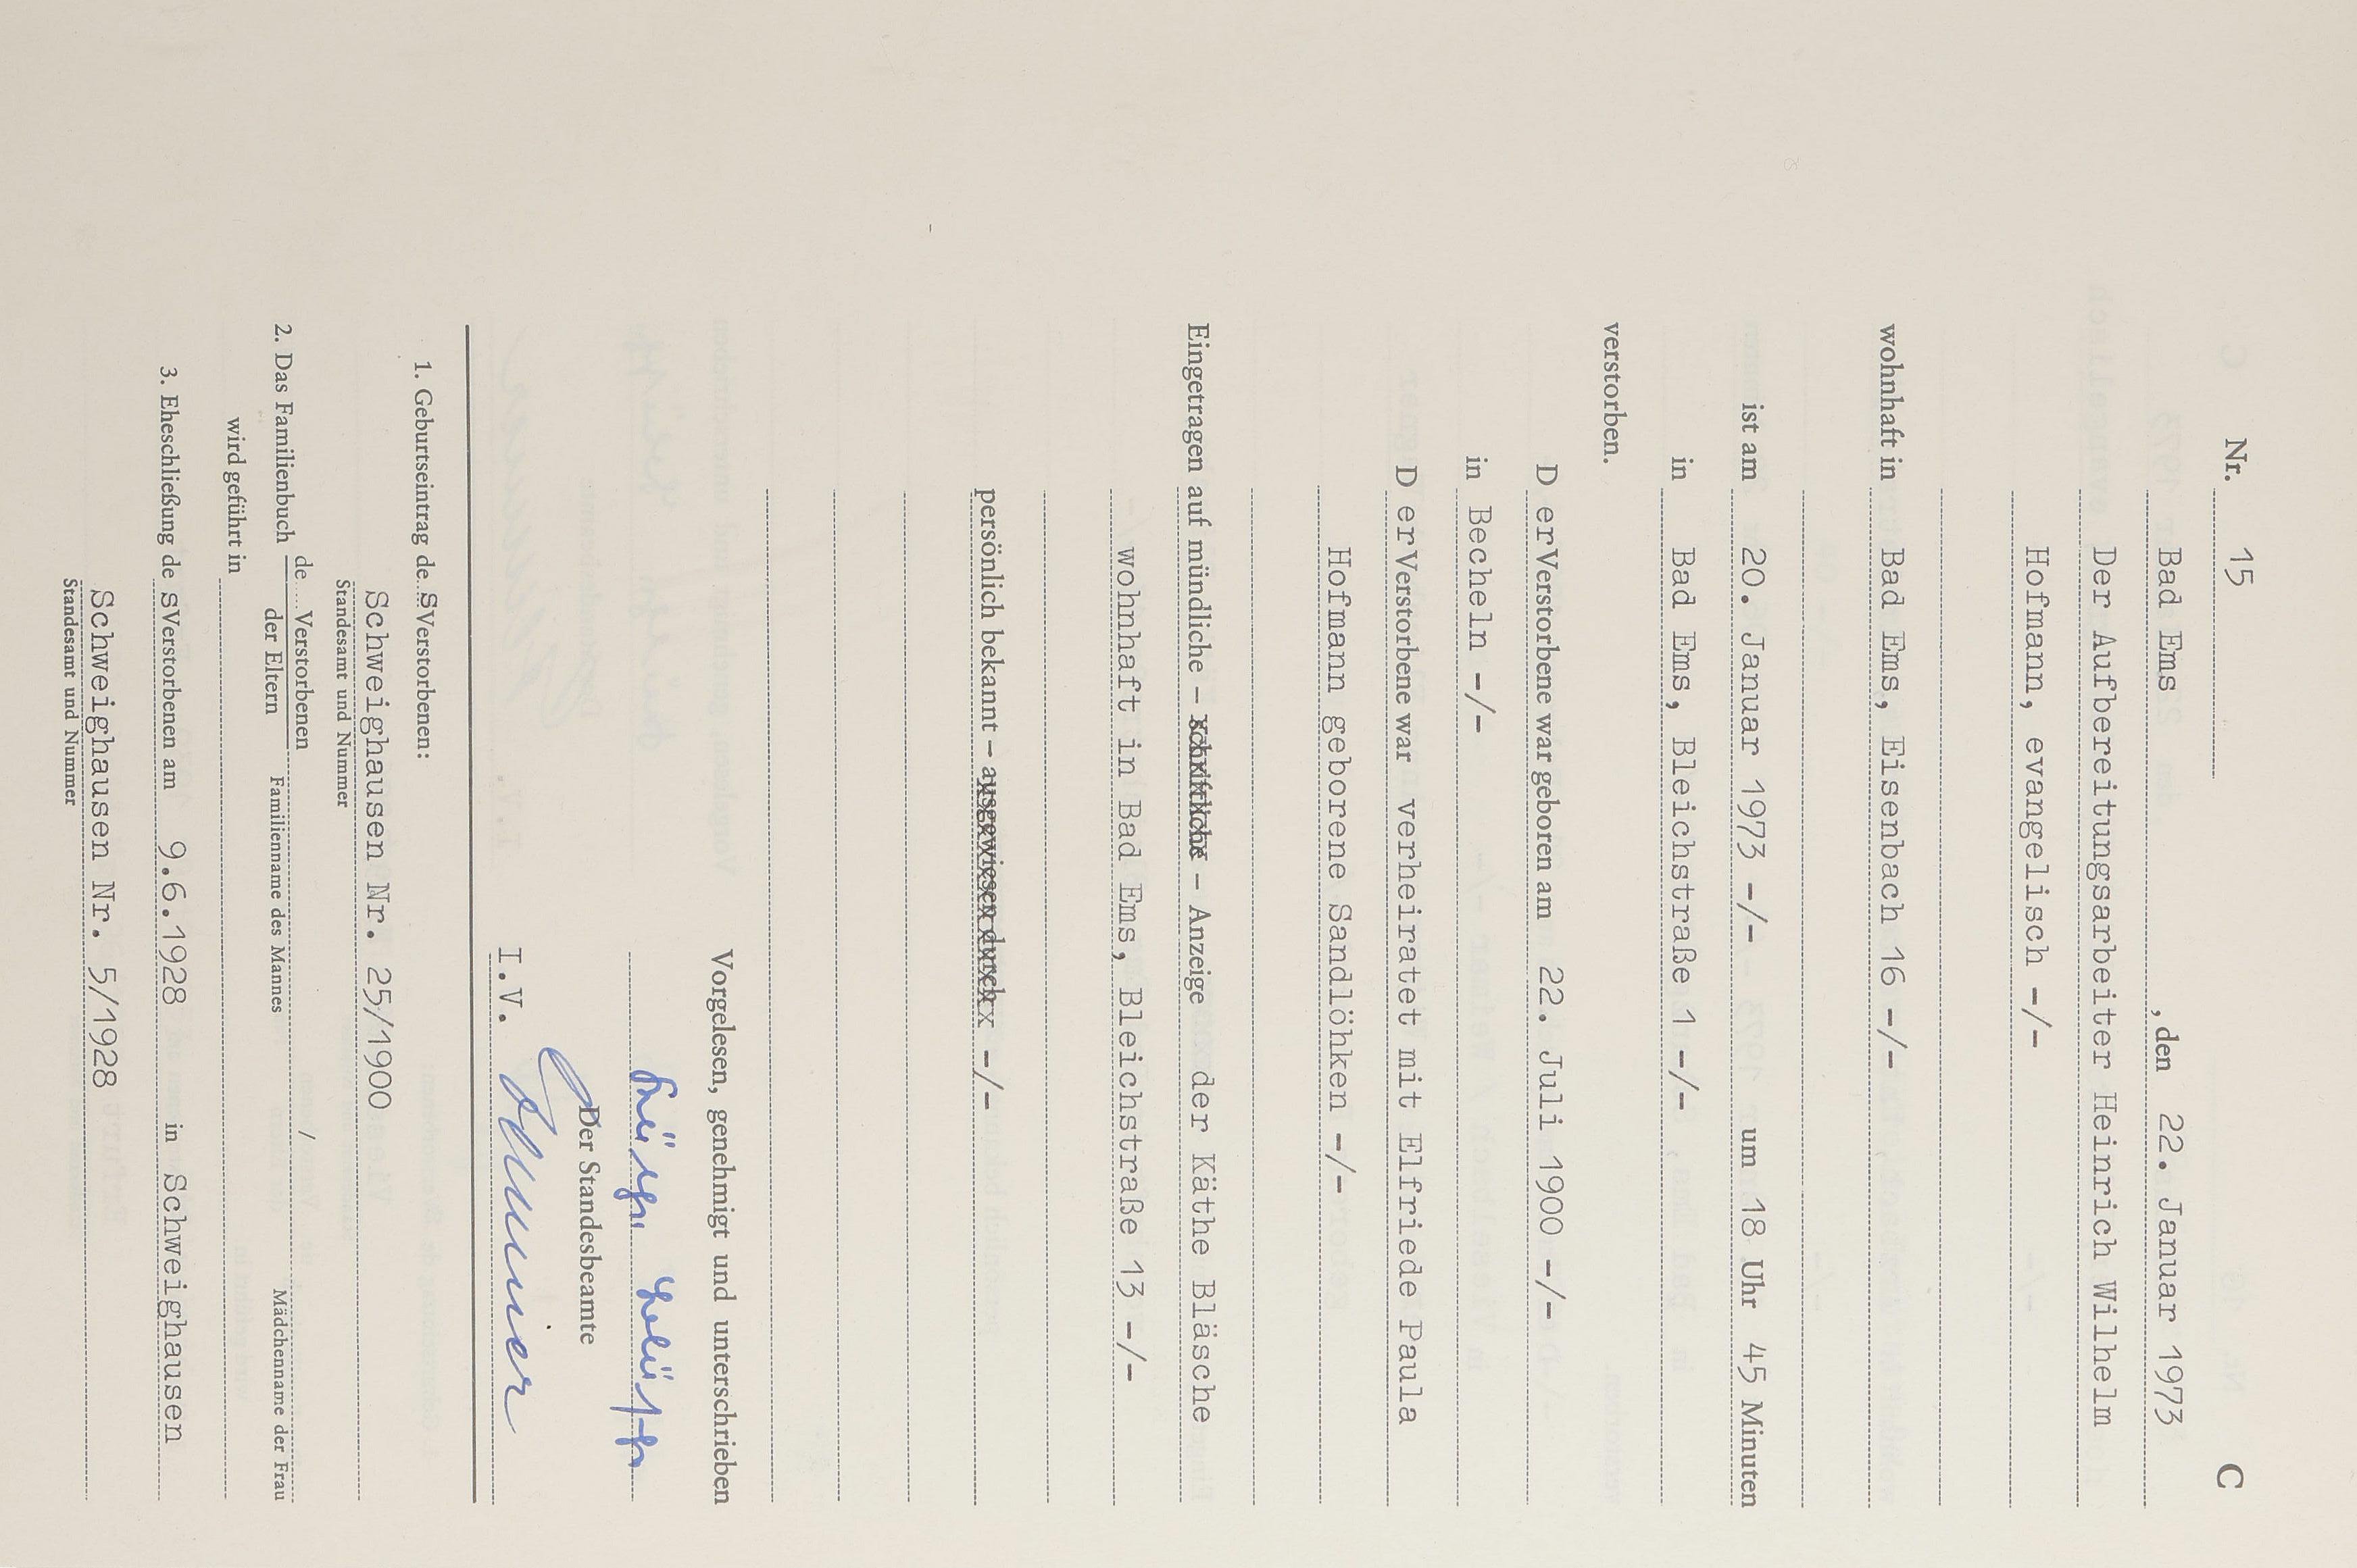 Nr. 15 C
Bad Ems, den 22. Januar 1973
Der Aufbereitungsarbeiter Heinrich Wilhelm
Hofmann, evangelisch -/-
wohnhaft in Bad Ems, Eisenbach 16 -/-
ist am 20. Januar 1973 -/- um 18 Uhr 45 Minuten
in Bad Ems, Bleichstraße 1 -/-
verstorben.
D er Verstorbene war geboren am 22. Juli 1900 -/-
in Becheln -/-
D er Verstorbene war verheiratet mit Elfriede Paula
Hofmann geborene Sandlöhken -/-
Eingetragen auf mündliche – schriftliche – Anzeige der Käthe Bläsche
wohnhaft in Bad Ems, Bleichstraße 13 -/-
persönlich bekannt – ausgewiesen durch -/-
Vorgelesen, genehmigt und unterschrieben
Der Standesbeamte
I.V.
1. Geburtseintrag de s Verstorbenen:
Schweighausen Nr. 25/1900
Standesamt und Nummer
de Verstorbenen /
2. Das Familienbuch der Eltern Familienname des Mannes Mädchenname der Frau
wird geführt in
3. Eheschließung de s Verstorbenen am 9.6.1928 in Schweighausen
Schweighausen Nr. 5/1928
Standesamt und Nummer